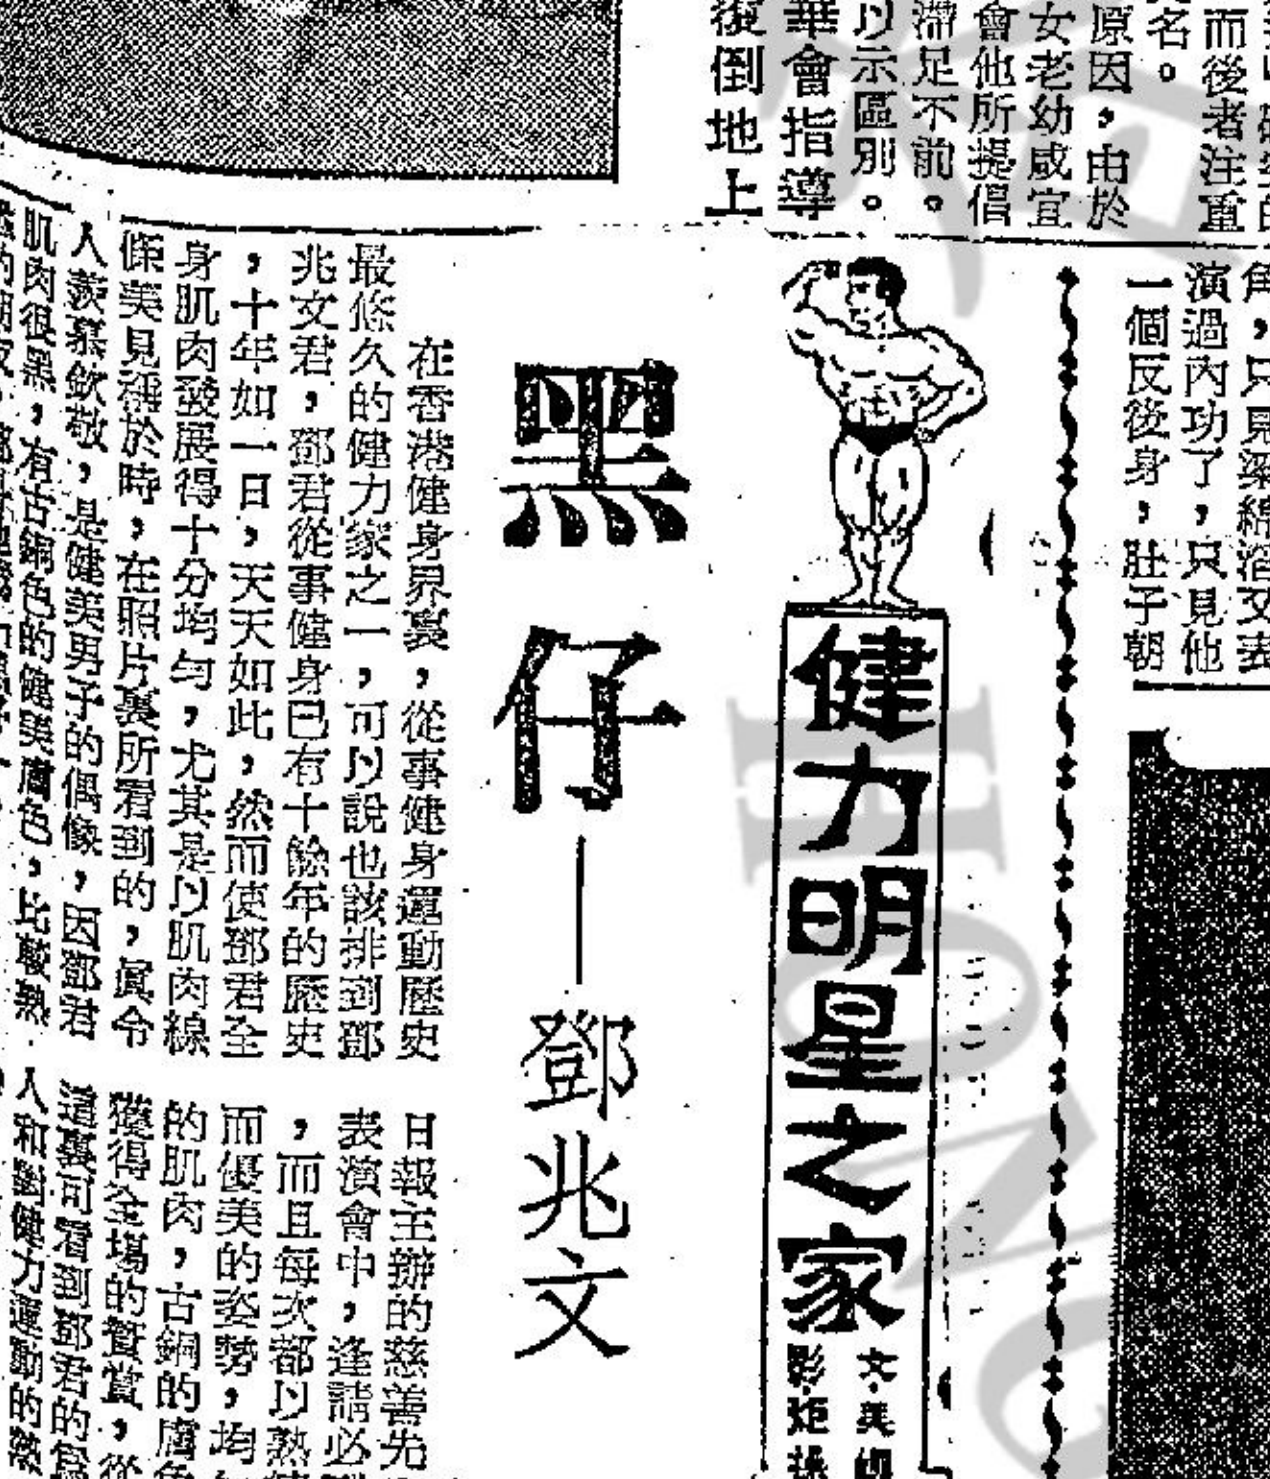 而後者注重
名。
原因，由於
女老幼咸宜
會他所提倡
滯足不前。
以示區別。
華會指導
復倒地上
演過內功了，只見他
一個反後身，肚子朝
健力明星之家
黑仔——鄧兆文
在香港健身界裏，從事健身運動歷史
最悠久的健力家之一，可以說也該排到鄧
兆文君，鄧君從事健身已有十餘年的歷史
，十年如一日，天天如此，然而使鄧君全
身肌肉發展得十分均勻，尤其是以肌肉線
條美見稱於時，在照片裏所看到的，眞令
人羨慕欽敬，是健美男子的偶像，因鄧君
肌肉很黑，有古銅色的健美膚色，比較熟
日報主辦的慈善先
表演會中，逢請必
，而且每次都以熟
而優美的姿勢，均
的肌肉，古銅的膚
獲得全場的贊賞，從
這裏可看到鄧君的爲
人和對健力運動的熱
HONG